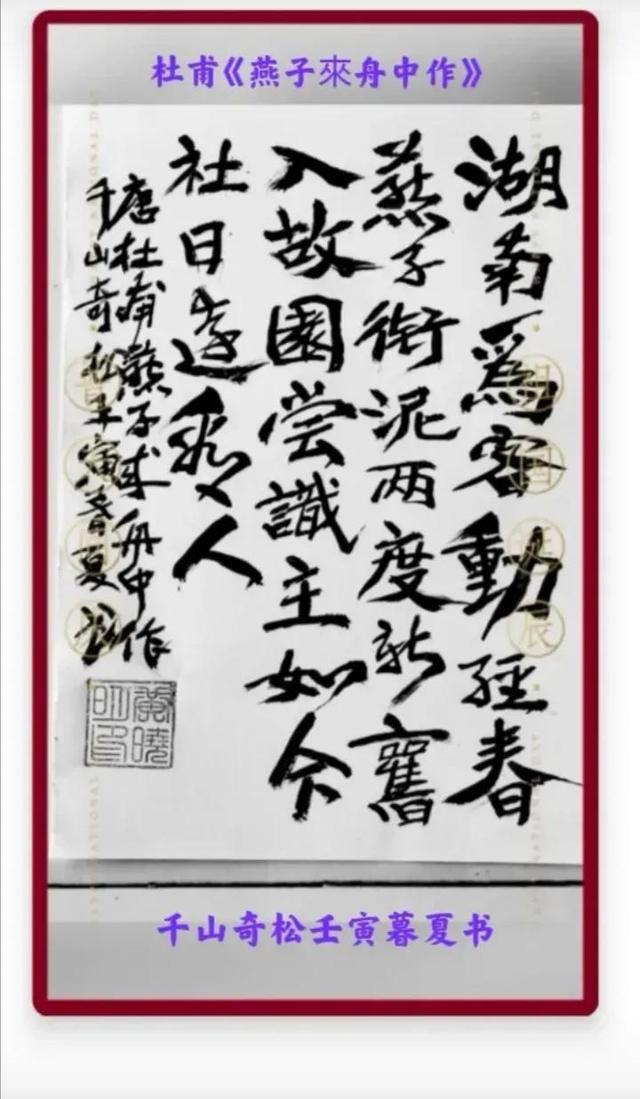 杜甫《燕子來舟中作》
湖南爲客動經春
燕子銜泥两度新舊
入故園尝識主如今
社日遠看人
唐杜甫燕子來舟中作
千山奇松壬寅暮夏书
黄曉明印
千山奇松壬寅暮夏书